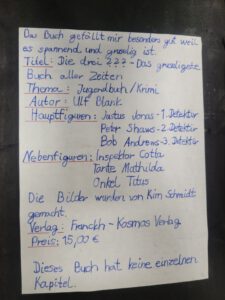 Das Buch gefällt mir besonders gut weil
es spannend und gruselig ist.
Titel: Die drei ??? - Das gruseligste
Buch aller Zeiten
Thema: Jugendbuch/Krimi
Autor: Ulf Blank
Hauptfiguren: Justus Jonas - 1. Detektiv
Peter Shaws - 2. Detektiv
Bob Andrews - 3. Detektiv
Nebenfiguren: Inspektor Cotta
Tante Mathilda
Onkel Titus
Die Bilder wurden von Kim Schmidt
gemacht.
Verlag: Franckh - Kosmos Verlag
Preis: 15,00 €
Dieses Buch hat keine einzelnen
Kapitel.